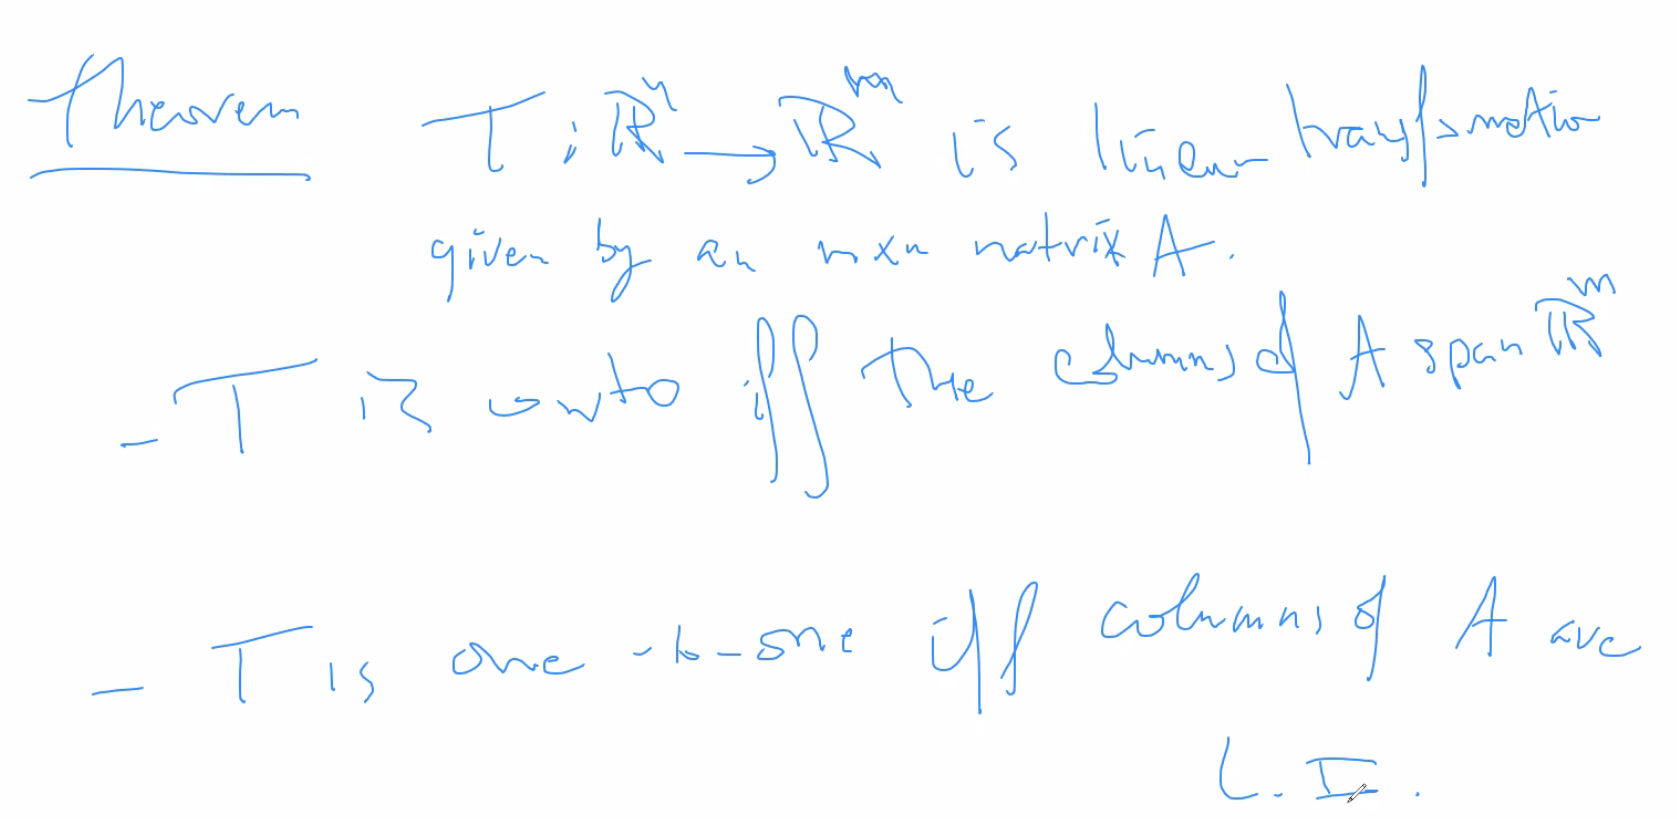 Theorem T : ℝⁿ → ℝᵐ is linear transformation
given by an m×n matrix A.
- T is onto iff the columns of A span ℝᵐ
- T is one-to-one iff columns of A are
L.I.